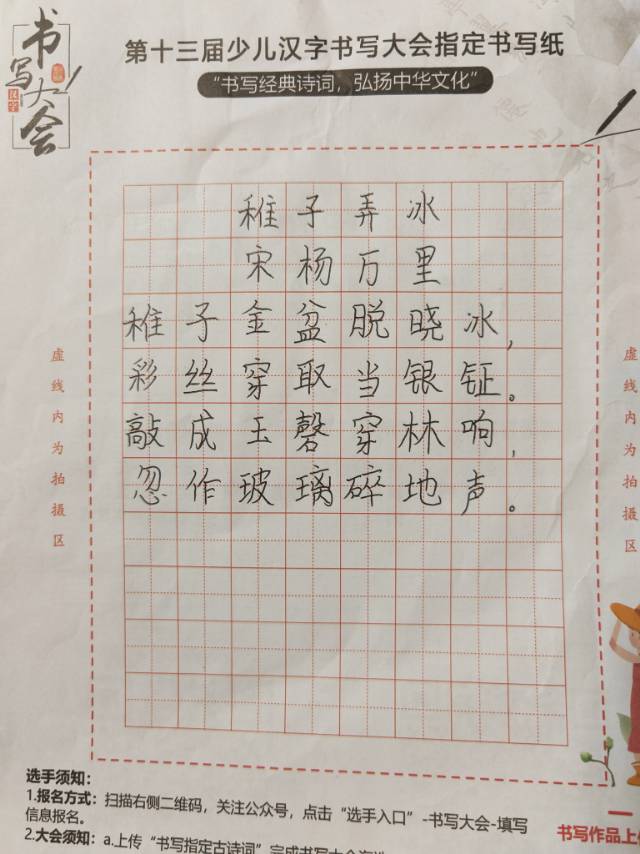 书写大会
汉字
第十三届少儿汉字书写大会指定书写纸
“书写经典诗词，弘扬中华文化”
稚子弄冰
宋杨万里
稚子金盆脱晓冰，
彩丝穿取当银钲。
敲成玉磬穿林响，
忽作玻璃碎地声。
虚线内为拍摄区
虚线内为拍摄区
选手须知：
1.报名方式：扫描右侧二维码，关注公众号，点击“选手入口”-书写大会-填写
信息报名。
2.大会须知：a.上传“书写指定古诗词”
书写作品上